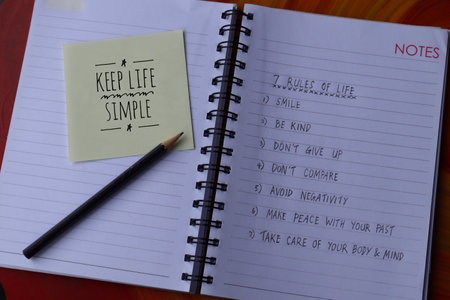 KEEP LIFE
SIMPLE
NOTES
7 RULES OF LIFE
1) SMILE
2) BE KIND
3) DON'T GIVE UP
4) DON'T COMPARE
5) AVOID NEGATIVITY
6) MAKE PEACE WITH YOUR PAST
7) TAKE CARE OF YOUR BODY & MIND